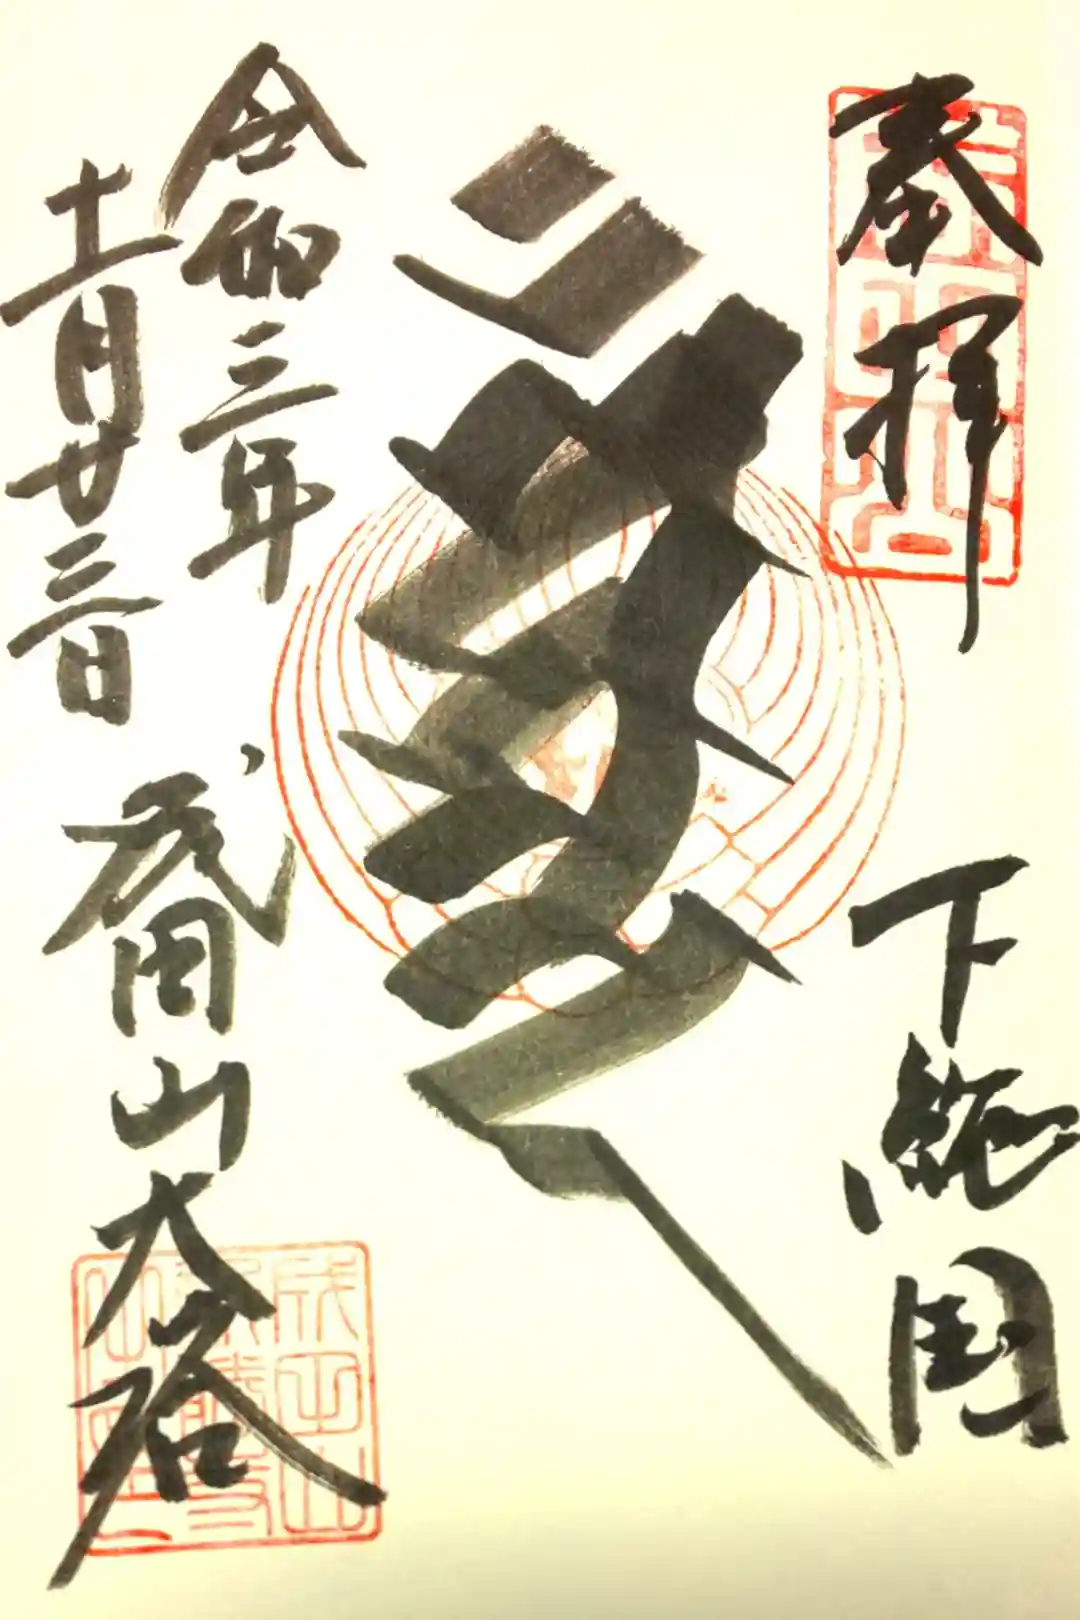 奉拝
下総国
令和三年
十一月廿三日
成田山大塔